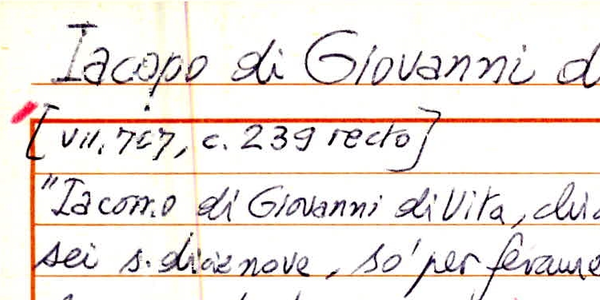 Iacopo di Giovanni d
[VII. 757, c. 239 recto]
"Iacomo di Giovanni di Vita,
sei s. diaznove, so' per